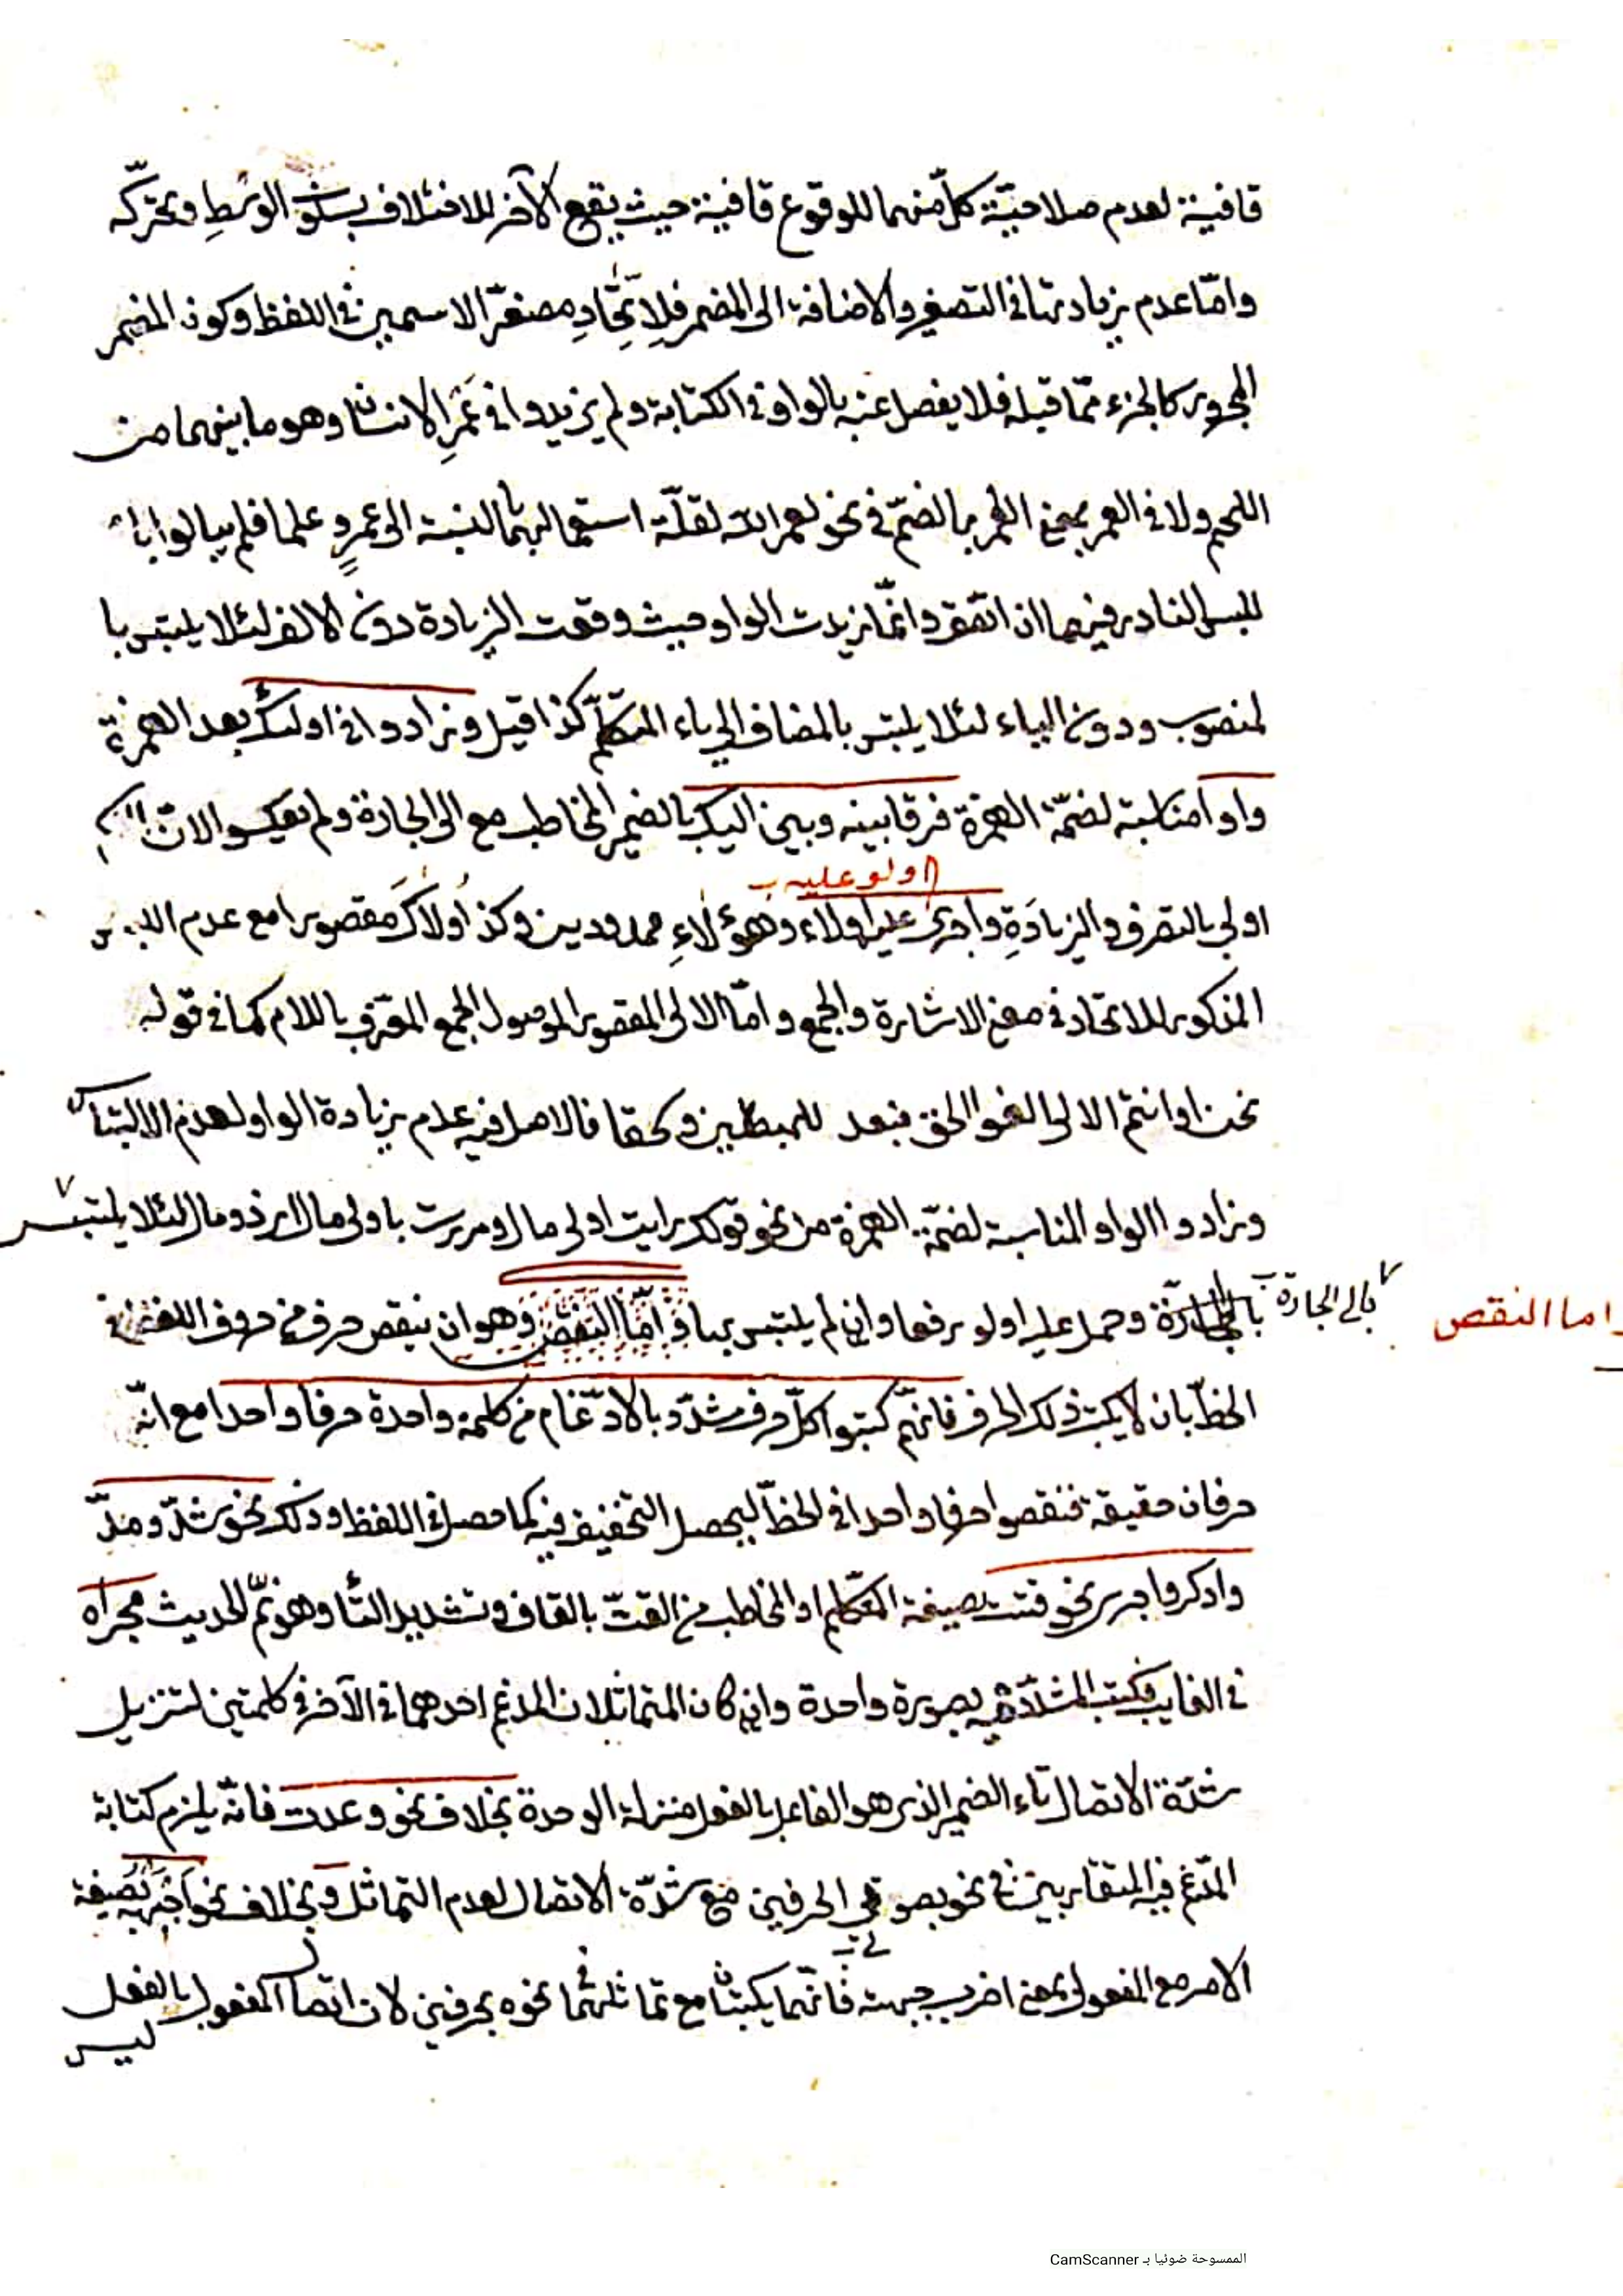 قافية لعدم صلاحيّة كلّ منهما للوقوع قافية حيث يقع الآخر للاختلاف بسكون الوسطِ وتحرّكه
وامّا عدم زيادتها في التصغير والاضافة الى المضمر فلاِتّحادِ مصغّر الاسمين في اللفظ وكون المضمر
المجرور كالجزء ممّا قبله فلا يفصل عنه بالواو في الكتابة ولم يزيدوا في عَمْرِ الاسنان وهو ما بينهما من
اللحم ولا في العمر بمعنى العُمر بالضمّ في نحو لعمر الله لقلّة استعمالهما بالنسبة الى عمرٍو علما فلم يبالوا
للبس النادر فيهما ان اتّفق وانّما زيدت الواو حيث وقعت الزيادة دون الالف لئلا يلتبس با
لمنصوب ودون الياء لئلا يلتبس بالمضاف الى ياء المتكلّم كذا قيل وزادوا في اولئك بعد الهمزة
واوا مناسبة لضمّة الهمزة فرقا بينه وبين اليك بالضمير المخاطب مع الى الجارة ولم يعكسوا لانّ
اولى بالتصرف والزيادَةِ واجرى عليه اولاء وهؤلاءِ ممدودين وكذا اُولاكَ مقصورا مع عدم اللبس
اولو عليه
المذكور للاتحاد في معنى الاشارة والجمع وامّا الالى المقصور الموصول الجمع المعرّف باللام كما في قوله
نحن او انتم الالى الفوا الحق فبعد للمبطلين وسحقا فالاصل فيه عدم زيادة الواو لعدم الالتباس
وزادوا الواو المناسبة لضمّة الهمزة من نحو قولك رايت اولى مال ومررت باولى مال اي ذو مال لئلا يلتبس
بالى الجارة وحمل عليه اولو رفعا وان لم يلتبس بها وامّا النقص وهو ان ينقص حرف من حروف اللفظ في
بالى الجارة
واما النقص
الخطّ بان لا يكتب ذلك الحرف فانّهم كتبوا كلّ حرف مشدّد بالادّغام من كلمة واحدة حرفا واحدا مع انّه
حرفان حقيقة فنقصوا حرفا واحدا في الخطّ ليحصل التخفيف فيه كما حصل في اللفظ وذلك نحو شدّ ومدّ
وادكر واجرى نحو قتت بصيغة المتكلّم او المخاطب من القتّ بالقاف وتشديد التّاء وهو نمّ الحديث مجراه
في الغايب فكتب المشدّد فيه بصورة واحدة وان كان المتماثلان المدغم احدهما في الآخر في كلمتين لتنزيل
شدّة الاتصال تاء الضمير الذي هو الفاعل بالفعل منزلة الوحدة بخلاف نحو وعدت فانّه يلزم كتابة
المدّغم فيه المتقاربين في نحو بصورتى الحرفين مع شدّة الاتصال لعدم التماثل وبخلاف نحو اَجْبَهْهُ بصيغة
الامر مع المفعول بمعنى اضرب جبهته فانّهما يكتبان مع تماثلهما في نحوه بحرفين لان اتصال المفعول بالفعل
ليس
الممسوحة ضوئيا بـ CamScanner